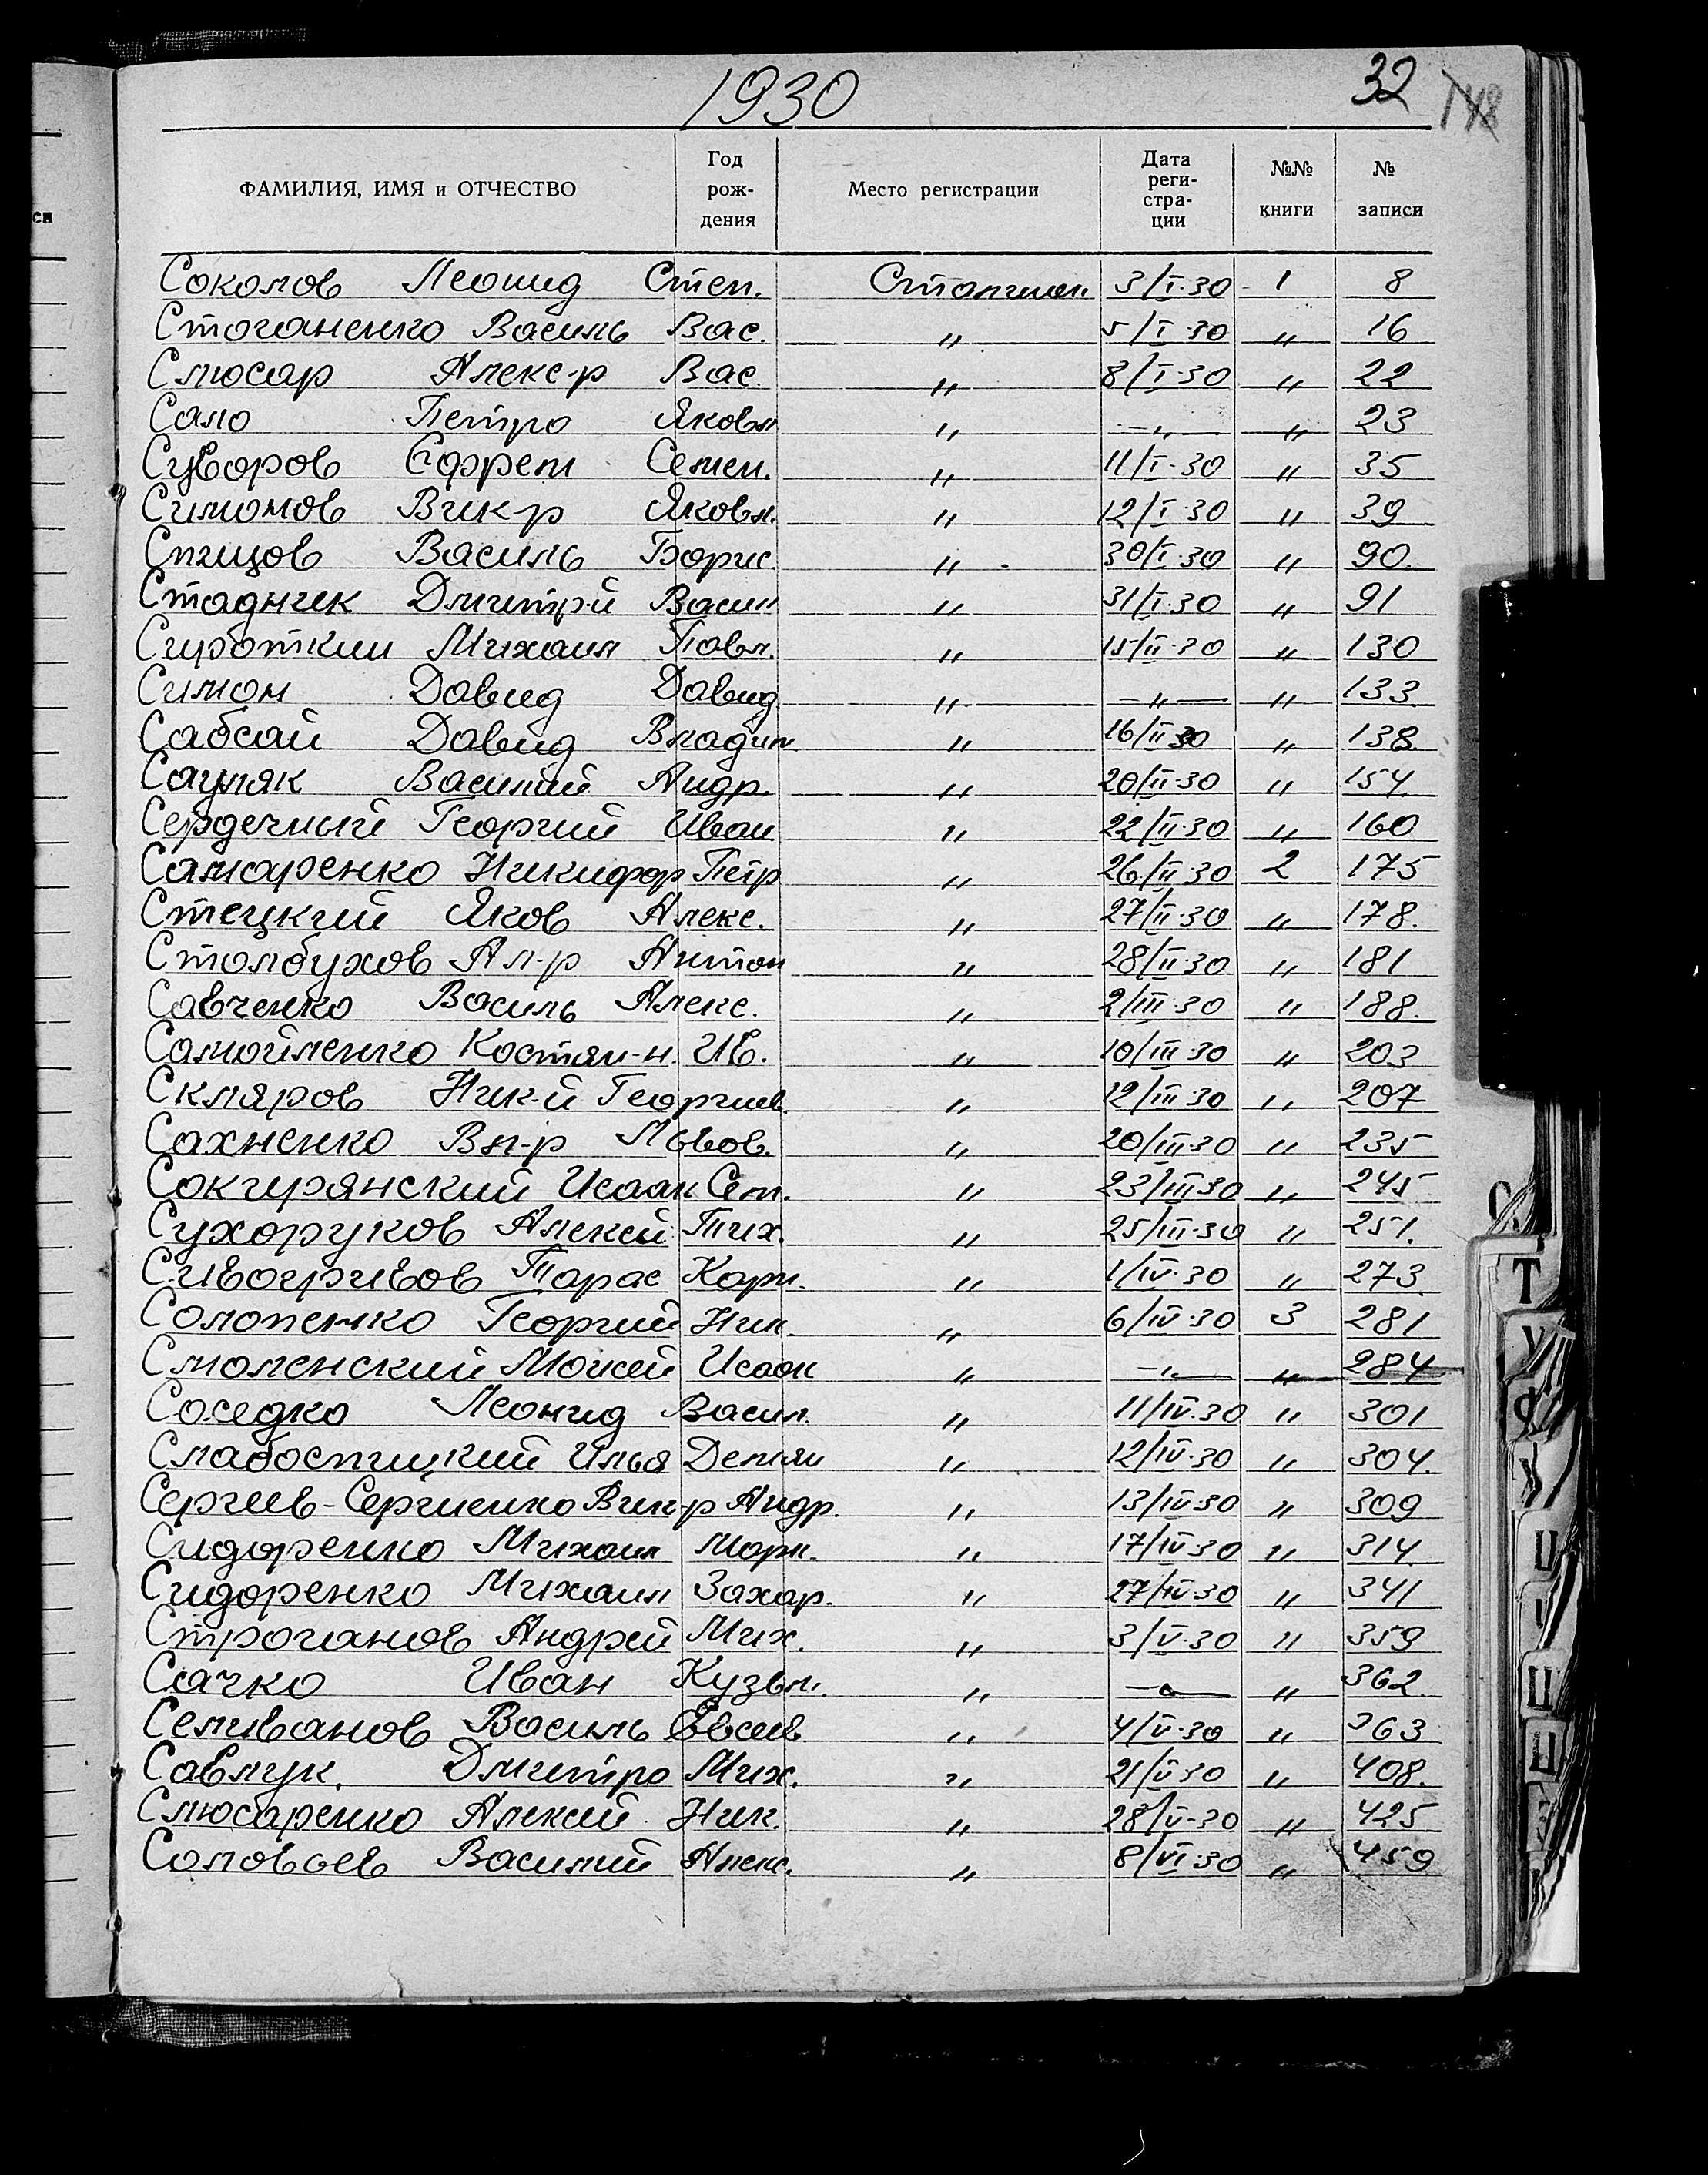 1930
32
148
ФАМИЛИЯ, ИМЯ и ОТЧЕСТВО Год рож-дения Место регистрации Дата реги-стра-ции №№ книги № записи
Соколов Леонид Степ. Сталинск. 3/I·30 1 8
Стоганенко Василь Вас. " 5/I·30 " 16
Слюсар Алекс-р Вас. " 8/I·30 " 22
Сало Петро Яковл " —"— " 23
Суворов Ефрем Семен. " 11/I·30 " 35
Симонов Вик-р Яковл. " 12/I·30 " 39
Спицов Василь Борис. " 30/I·30 " 90.
Стадник Дмитрий Васил " 31/I·30 " 91
Сироткин Михаил Павл. " 15/II·30 " 130
Симон Давид Давид " —"— " 133
Сабсай Давид Владим. " 16/II 30 " 138.
Сауляк Василий Андр. " 20/II·30 " 154.
Сердечный Георгий Иван " 22/II·30 " 160
Самаренко Никифор Петр " 26/II·30 2 175
Стецкий Яков Алекс. " 27/II·30 " 178.
Столбухов Ал-р Антон " 28/II·30 " 181
Савченко Василь Алекс. " 2/III·30 " 188.
Самойленко Костян-н. Ив. " 10/III·30 " 203
Скляров Ник-й Георгиев. " 12/III·30 " 207
Сахненко Вл-р Львов. " 20/III·30 " 235
Сокирянский Исаак Сем. " 23/III·30 " 245
Сухоруков Алексей Тих. " 25/III·30 " 251.
Сивогривов Тарас Карп. " 1/IV·30 " 273
Солопенко Георгий Ник. " 6/IV·30 3 281
Смоленский Моисей Исаак " —"— " 284
Соседко Леонид Васил. " 11/IV·30 " 301
Слабоспицкий Илья Демян " 12/IV·30 " 304.
Сергиев-Сергиенко Вик-р Андр. " 13/IV·30 " 309
Сидоренко Михаил Марк. " 17/IV·30 " 314
Сидоренко Михаил Захар. " 27/IV·30 " 341
Строганов Андрей Мих. " 3/V·30 " 359
Сачко Иван Кузьм. " —"— " 362
Селиванов Василь Евсеев " 4/V·30 " 363
Савлук. Дмитро Мих. " 21/V·30 " 408.
Слюсаренко Алексей Ник. " 28/V·30 " 425
Соловьев Василий Алекс. " 8/VI·30 " 459
С.
Т
У
Ф
Х
Ц
Ч
Ш